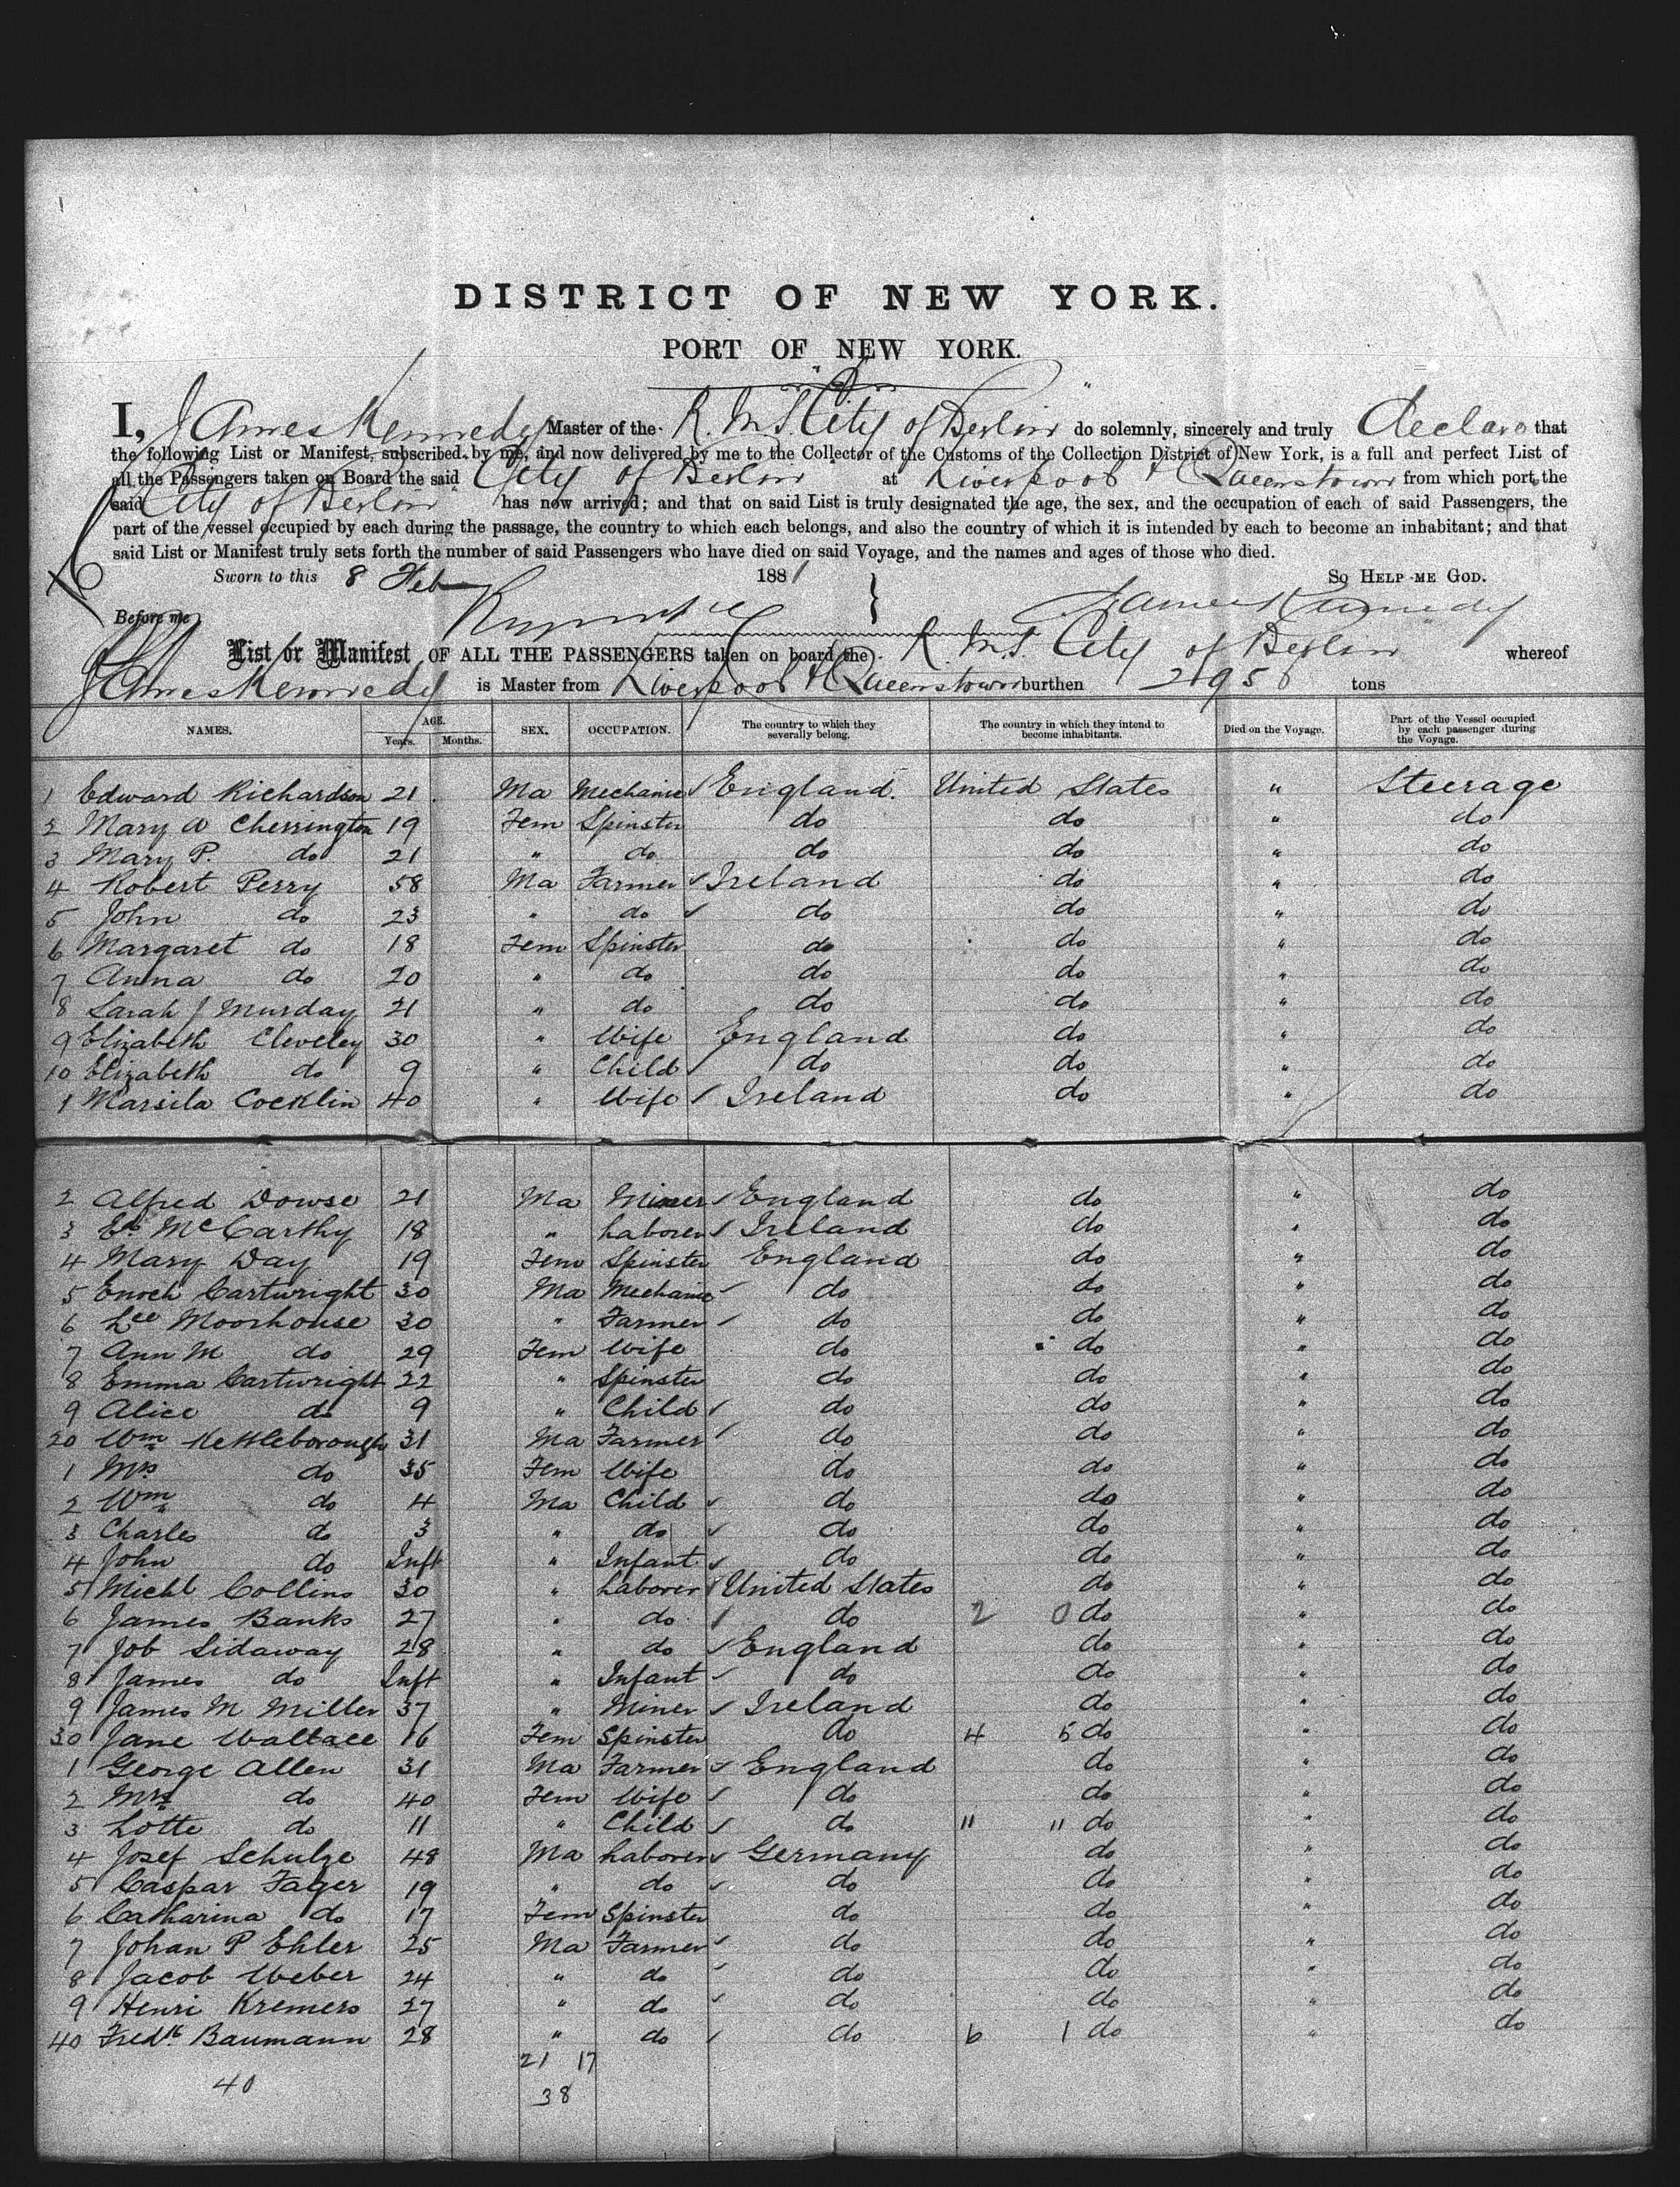 DISTRICT OF NEW YORK.
PORT OF NEW YORK.
I, James Kennedy Master of the R. M. S. City of Berlin do solemnly, sincerely and truly declare that
the following List or Manifest, subscribed by me, and now delivered by me to the Collector of the Customs of the Collection District of New York, is a full and perfect List of
all the Passengers taken on Board the said City of Berlin at Liverpool & Queenstown from which port the
said City of Berlin has now arrived; and that on said List is truly designated the age, the sex, and the occupation of each of said Passengers, the
part of the vessel occupied by each during the passage, the country to which each belongs, and also the country of which it is intended by each to become an inhabitant; and that
said List or Manifest truly sets forth the number of said Passengers who have died on said Voyage, and the names and ages of those who died.
Sworn to this 8 Feb 1881 SO HELP ME GOD.
Before me James Kennedy
List or Manifest OF ALL THE PASSENGERS taken on board the R. M. S. City of Berlin whereof
James Kennedy is Master from Liverpool & Queenstown burthen 2195 tons
NAMES. AGE. Years. Months. SEX. OCCUPATION. The country to which they severally belong. The country in which they intend to become inhabitants. Died on the Voyage. Part of the Vessel occupied by each passenger during the Voyage.
1 Edward Richardson 21 Ma Mechanic England. United States " Steerage
2 Mary A Cherrington 19 Fem Spinster do do " do
3 Mary P. do 21 " do do do " do
4 Robert Perry 58 Ma Farmer Ireland do " do
5 John do 23 " do do do " do
6 Margaret do 18 Fem Spinster do do " do
7 Anna do 20 " do do do " do
8 Sarah J Murday 21 " do do do " do
9 Elizabeth Cleveley 30 " Wife England do " do
10 Elizabeth do 9 " Child do do " do
1 Marsila Cocklin 40 " Wife Ireland do " do
2 Alfred Dowse 21 Ma Miner England do " do
3 Ed McCarthy 18 " Laborer Ireland do " do
4 Mary Day 19 Fem Spinster England do " do
5 Enoch Cartwright 30 Ma Mechanic do do " do
6 Lee Moorhouse 30 " Farmer do do " do
7 Ann M do 29 Fem Wife do do " do
8 Emma Cartwright 22 " Spinster do do " do
9 Alice do 9 " Child do do " do
20 Wm Kettleborough 31 Ma Farmer do do " do
1 Mrs do 35 Fem Wife do do " do
2 Wm do 4 Ma Child do do " do
3 Charles do 3 " do do do " do
4 John do Inft " Infant do do " do
5 Michl Collins 30 " Laborer United States do " do
6 James Banks 27 " do do 2 0 do " do
7 Job Sidaway 28 " do England do " do
8 James do Inft " Infant do do " do
9 James M Miller 37 " Miner Ireland do " do
30 Jane Wallace 16 Fem Spinster do 4 5 do " do
1 George Allen 31 Ma Farmer England do " do
2 Mrs do 40 Fem Wife do do " do
3 Lotte do 11 " Child do " " do " do
4 Josef Schulze 48 Ma Laborer Germany do " do
5 Caspar Fager 19 " do do do " do
6 Catharina do 17 Fem Spinster do do " do
7 Johan P Ehler 25 Ma Farmer do do " do
8 Jacob Weber 24 " do do do " do
9 Henri Kremers 27 " do do do " do
40 Fredk Baumann 28 " do do 6 1 do " do
21 17
40
38